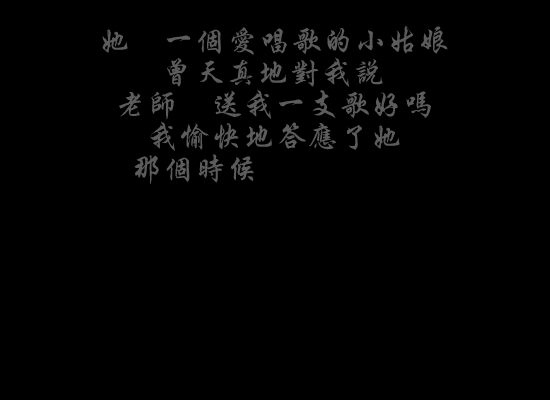 她　一個愛唱歌的小姑娘
曾天真地對我說
老師　送我一支歌好嗎
我愉快地答應了她
那個時候